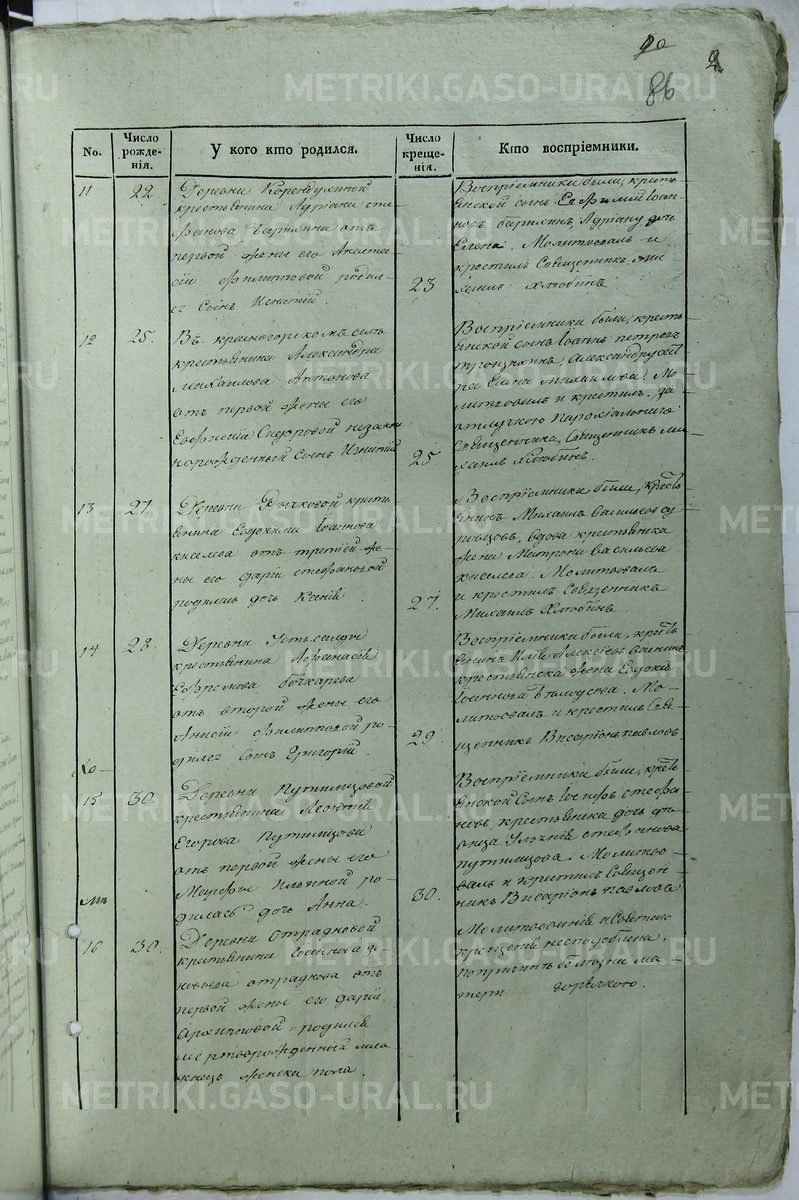 METRIKI.GASO-URAL.RU
86
No.
Число рожденія.
У кого кто родился.
Число крещенія.
Кто воспріемники.
11
22
Деревни
крестьянина Адріана Сте-
фанова отъ
первой жены его
Филипповой родил-
ся Сынъ Игнатій
23
Воспріемники были, кресть-
янской сынъ Евфимій Іоан-
новъ Адріану дочь
Елена. Молитвовалъ и
крестилъ Священникъ Ми-
хаилъ Хлюбинъ
12
25.
Въ Красногорскомъ селѣ
крестьянина Александра
Михаилова Антонова
отъ первой жены его
Евфиміи Сидоровой незакон
норожденный Сынъ Игнатій
25.
Воспріемники были, кресть
янской сынъ Іоаннъ Петровъ
Мо-
литвовалъ и крестилъ, за
отлучкою Парохіальнаго
Священника, Священникъ Ми-
хаилъ Хлюбинъ.
13
27.
Деревни Рычковой кресть-
янина Евдокима Іоаннова
Киселева отъ третіей же-
ны его Даріи Стефановой
родилась дочь Ксенія
27.
Воспріемники были, кресть
янинъ Михаилъ Васильевъ
вдова крестьянка
жена Матрона Васильева
Киселева. Молитвовалъ
и крестилъ Священникъ
Михаилъ Хлюбинъ.
14
28.
Деревни Усть-салды
крестьянина Афанасія
Ефремова Бочкарева
отъ второй жены его
Анисіи Филипповой ро-
дился сынъ Григорій.
29.
Воспріемники были, кресть
янинъ Илія Алексѣевъ
крестьянска жена Евдокія
Іоаннова. Мо-
литвовалъ и крестилъ Свя-
щенникъ Висаріонъ Павловъ
15
30.
Деревни Путимцовой
крестьянина Леонтія
Егорова Путимцова
отъ первой жены его
Ильиной ро-
дилась дочь Анна.
30.
Воспріемники были, кресть
янской Сынъ Іосифъ Стефа-
новъ, крестьянка дочь дѣ-
вица Стефанова
Путимцова. Молитво-
валъ и крестилъ Священ-
никъ Висаріонъ Павловъ
16
30.
Деревни Отрадновой
крестьянина
Отраднова отъ
первой жены его Даріи
Архипповой родился
мертворожденный мла-
денецъ женска пола.
Молитвованія и Святаго
Крещенія несподоблена,
по причинѣ болѣзни ма-
тери горячкою.